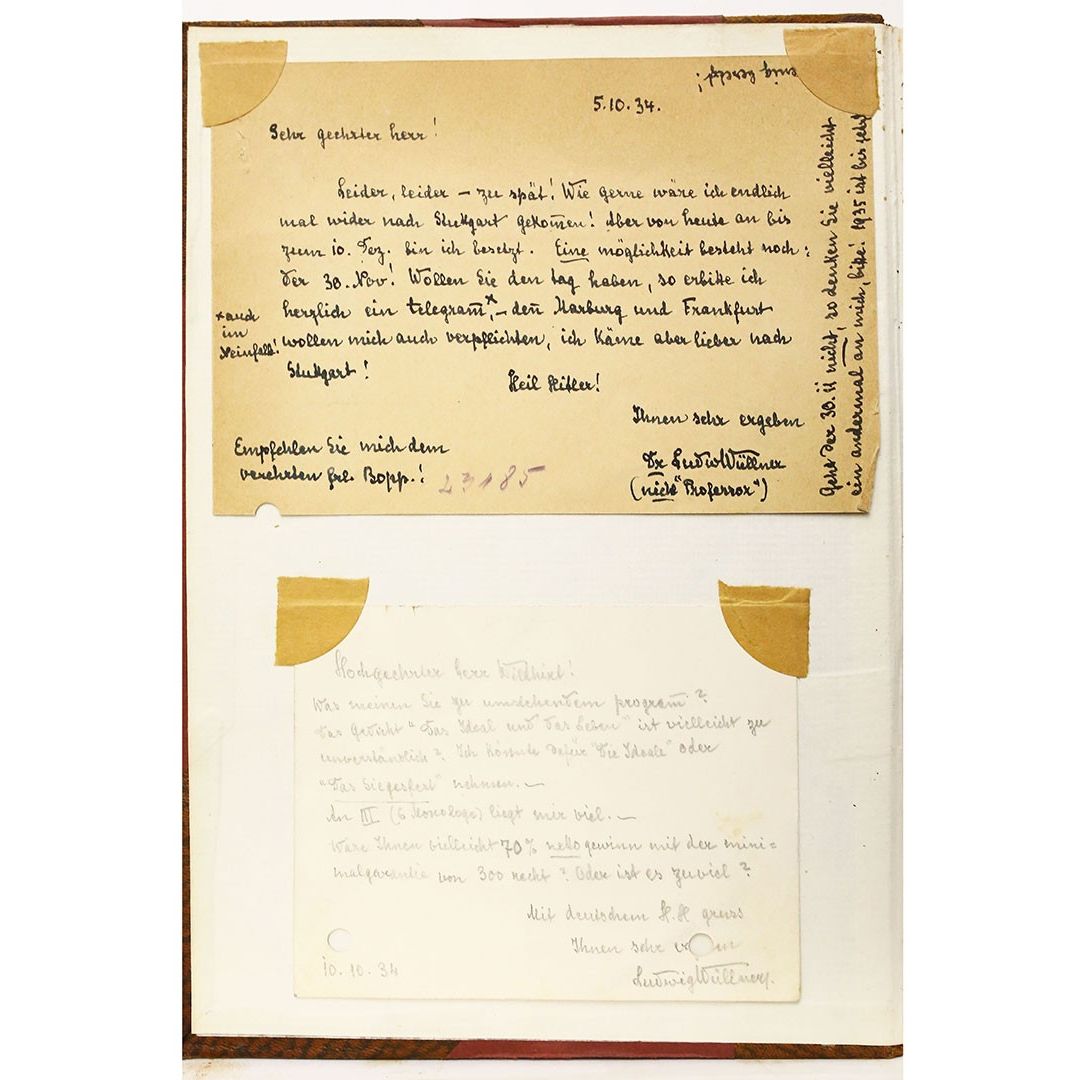 5.10.34.
Sehr geehrter herr!
Leider, leider – zu spät! Wie gerne wäre ich endlich
mal wider nach Stuttgart gekom̅en! Aber von heute an bis
zum 10. Dez. bin ich besetzt. Eine möglichkeit besteht noch:
der 30. Nov! Wollen Sie den tag haben, so erbitte ich
herzlich ein telegram̅ˣ, – den̅ Marburg und Frankfurt
wollen mich auch verpflichten, ich käme aber lieber nach
Stuttgart!
x auch
im
Neinfall!
Heil Hitler!
Ihnen sehr ergeben
Dr LudwWüllner
(nicht "Professor")
Empfehlen Sie mich dem
verehrten frl. Bopp.!
23185
Geht der 30.11 nicht, so denken Sie vielleicht
ein andermal an mich, bitte! 1935 ist bis jetzt
wenig besetzt!
Hochgeehrter herr
Was meinen Sie zu umstehendem program̅?
Das Gedicht "Das Ideal und das Leben" ist vielleicht zu
unverständlich? Ich könnte dafür "Die Ideale" oder
"Das Siegesfest" nehmen. –
An III (6 Monologe) liegt mir viel. –
Wäre Ihnen vielleicht 70% nettogewinn mit der mini=
malgarantie von 300 recht? Oder ist es zuviel?
Mit deutschem H.H gruss
Ihnen sehr
10.10.34
LudwigWüllner.